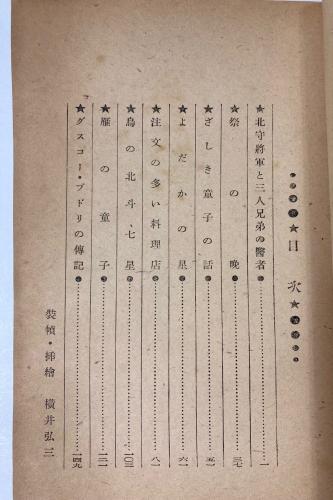 ★目次★
★北守將軍と三人兄弟の醫者●……………一
★祭の晩●……………三七
★ざしき童子の話●……………五一
★よだかの星●……………六一
★注文の多い料理店●……………八一
★烏の北斗七星●……………一〇三
★雁の童子●……………一二一
★グスコー・ブドリの傳記●……………一四九
裝幀・挿繪 横井弘三